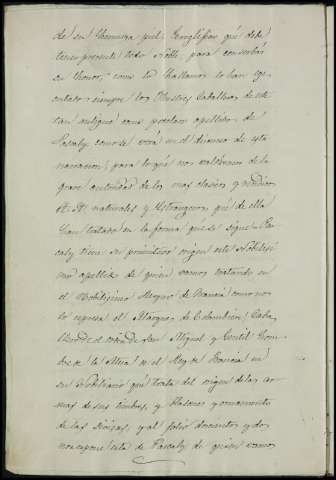 de su Hermosa piel. Geroglifico qué debe
tener presente todo Noble para conserbar
su honor, como lo hallamos lo han ege-
cutado siempre los Ilustres Caballeros de este
tan antiguo como preclaro apellido de
Pascaly como se verá en el discurso de esta
narracion; para lo qué nos valdremos de la
grave autoridad de los mas clasicos y
A. A. naturales y Estrangeros, que de ella
han tratado en la forma qué se sigue. Pas-
caly tiene su primitivo origen este Nobilisi-
mo apellido de quien vamos tratando en
el Nobilisimo Reyno de Francia como nos
lo espresa el Marques de Colombier, Caba-
llero de el orden de San Miguel y Gentil Hom-
bre de la del Rey de Francia en
su Nobiliario qué trata del origen de las ar-
mas de sus timbres, y Blasones y ornamentos
de las Divisas, y al folio doscientos y dos
nos espone esta de Pascaly de quien vamos